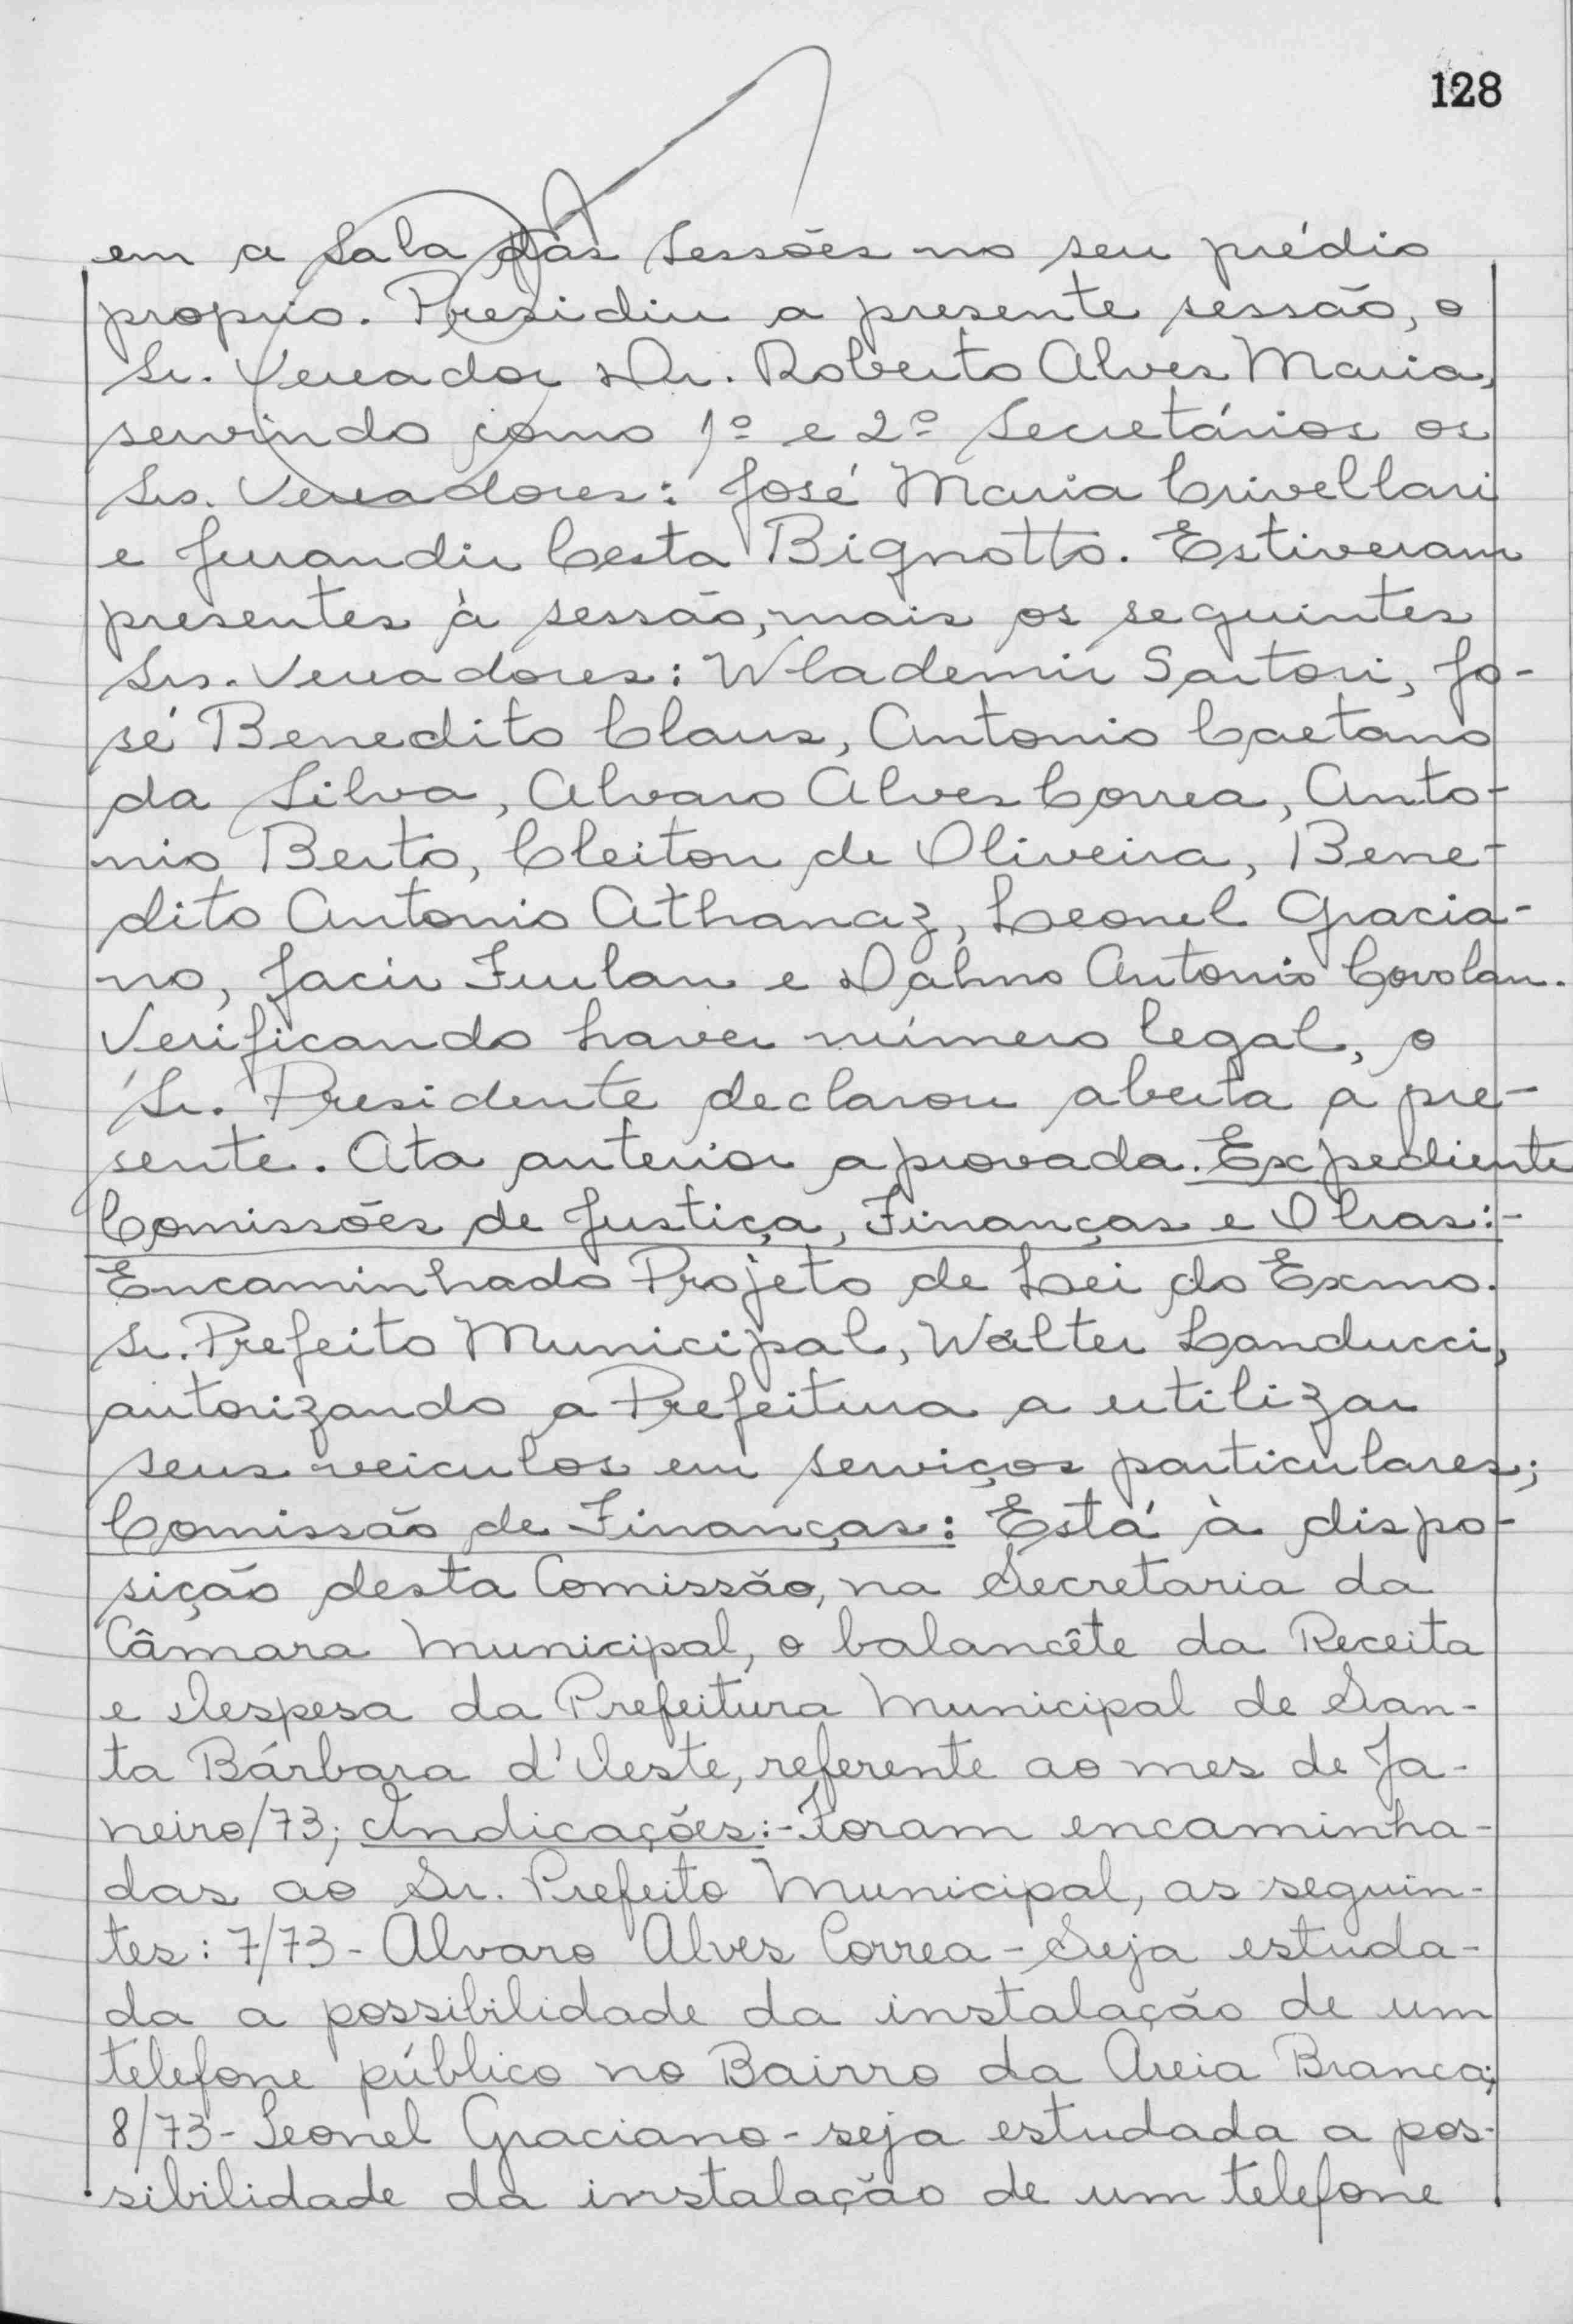 128
em a Sala das Sessões no seu prédio
proprio. Presidiu a presente sessão, o
Sr. Vereador Dr. Roberto Alves Maria,
servindo como 1º e 2º Secretários os
Srs. Vereadores: José Maria Crivellari
e Jurandir Cesta Bignotto. Estiveram
presentes à sessão, mais os seguintes
Srs. Vereadores: Wlademir Sartori, Jo-
sé Benedito Claus, Antonio Caetano
da Silva, Alvaro Alves Correa, Anto-
nio Berto, Cleiton de Oliveira, Bene-
dito Antonio Athanaz, Leonel Gracia-
no, Jacir Furlan e Dalmo Antonio Covolan.
Verificando haver número legal, o
Sr. Presidente declarou aberta a pre-
sente. Ata anterior aprovada. Expediente
Comissões de Justiça, Finanças e Obras:-
Encaminhado Projeto de Lei do Exmo.
Sr. Prefeito Municipal, Walter Landucci,
autorizando a Prefeitura a utilizar
seus veiculos em serviços particulares;
Comissão de Finanças: Está à dispo-
sição desta Comissão, na Secretaria da
Câmara Municipal, o balancête da Receita
e Despesa da Prefeitura Municipal de San-
ta Bárbara d'Oeste, referente ao mes de Ja-
neiro/73; Indicações:- Foram encaminha-
das ao Sr. Prefeito Municipal, as seguin-
tes: 7/73 - Alvaro Alves Correa - Seja estuda-
da a possibilidade da instalação de um
telefone público no Bairro da Areia Branca;
8/73 - Leonel Graciano - seja estudada a pos-
sibilidade da instalação de um telefone